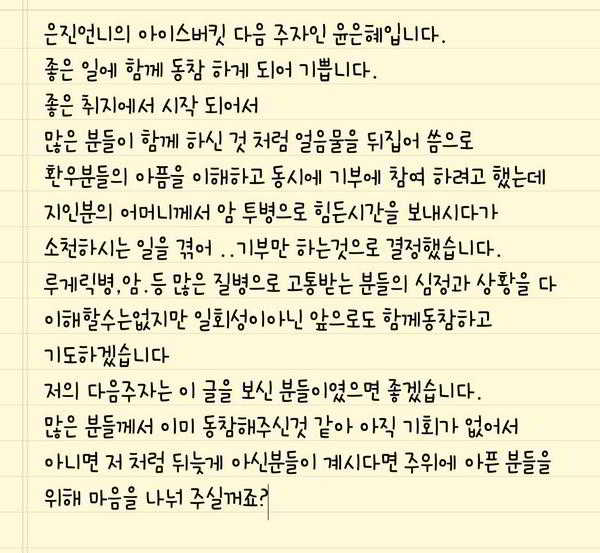 은진언니의 아이스버킷 다음 주자인 윤은혜입니다.
좋은 일에 함께 동참 하게 되어 기쁩니다.
좋은 취지에서 시작 되어서
많은 분들이 함께 하신 것 처럼 얼음물을 뒤집어 씀으로
환우분들의 아픔을 이해하고 동시에 기부에 참여 하려고 했는데
지인분의 어머니께서 암 투병으로 힘든시간을 보내시다가
소천하시는 일을 겪어 ..기부만 하는것으로 결정했습니다.
루게릭병,암.등 많은 질병으로 고통받는 분들의 심정과 상황을 다
이해할수는없지만 일회성이아닌 앞으로도 함께동참하고
기도하겠습니다
저의 다음주자는 이 글을 보신 분들이였으면 좋겠습니다.
많은 분들께서 이미 동참해주신것 같아 아직 기회가 없어서
아니면 저 처럼 뒤늦게 아신분들이 계시다면 주위에 아픈 분들을
위해 마음을 나눠 주실꺼죠?